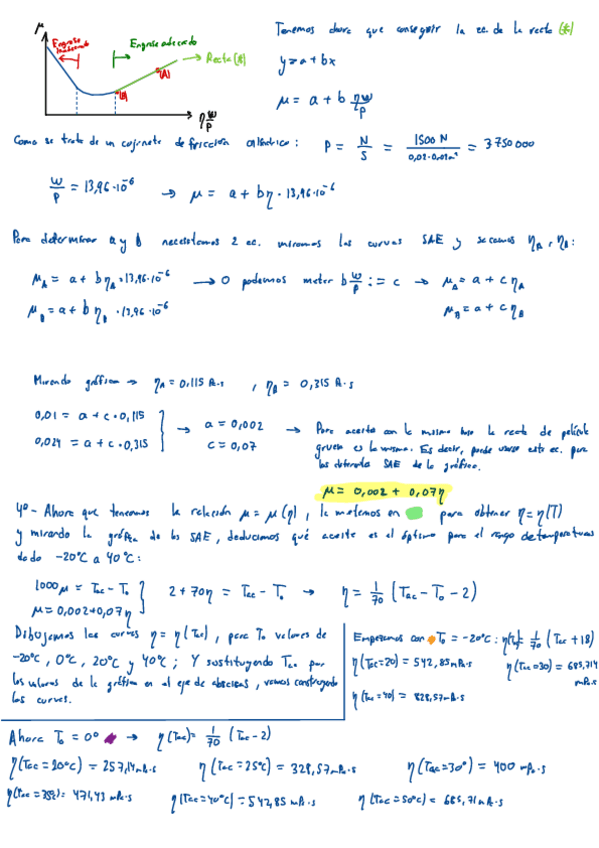 μ
Engrase inadecuado
Engrase adecuado
→ Recta (*)
(A)
(B)
ηω/P
Tenemos ahora que conseguir la ec. de la recta (*)
y = a + bx
μ = a + b ηω/P
Como se trata de un cojinete de fricción cilíndrico: P = N/S = 1500 N / 0,02·0,02m² = 3750000
ω/P = 13,96·10⁻⁶ → μ = a + bη · 13,96·10⁻⁶
Para determinar a y b necesitamos 2 ec. miramos las curvas SAE y sacamos ηA, ηB:
μA = a + bηA·13,96·10⁻⁶ → O podemos meter b ω/P := c → μA = a + cηA
μB = a + bηB·13,96·10⁻⁶ μB = a + cηB
Mirando gráfica → ηA = 0,115 Pa·s , ηB = 0,315 Pa·s
0,01 = a + c·0,115
0,024 = a + c·0,315
→ a = 0,002
c = 0,07
→ Para aceite con la misma base la recta de película
gruesa es la misma. Es decir, puede usarse esta ec. para
los distintos SAE de la gráfica.
μ = 0,002 + 0,07η
4º - Ahora que tenemos la relación μ = μ(η), la metemos en para obtener η = η(T)
y mirando la gráfica de los SAE, deducimos qué aceite es el óptimo para el rango de temperaturas
dado -20°C a 40°C:
1000μ = Tac - To
μ = 0,002 + 0,07η
2 + 70η = Tac - To → η = 1/70 (Tac - To - 2)
Dibujamos las curvas η = η(Tac), para To valores de
-20°C, 0°C, 20°C y 40°C; Y sustituyendo Tac por
los valores de la gráfica en el eje de abscisas, vamos construyendo
las curvas.
Empezamos con To = -20°C: η(Tac) = 1/70 (Tac + 18)
η(Tac=20) = 542,85 mPa·s η(Tac=30) = 685,714 mPa·s
η(Tac=40) = 828,57 mPa·s
Ahora To = 0° → η(Tac) = 1/70 (Tac - 2)
η(Tac = 20°C) = 257,14 mPa·s η(Tac = 25°C) = 328,57 mPa·s η(Tac = 30°) = 400 mPa·s
η(Tac = 35°) = 471,43 mPa·s η(Tac = 40°C) = 542,85 mPa·s η(Tac = 50°C) = 685,71 mPa·s